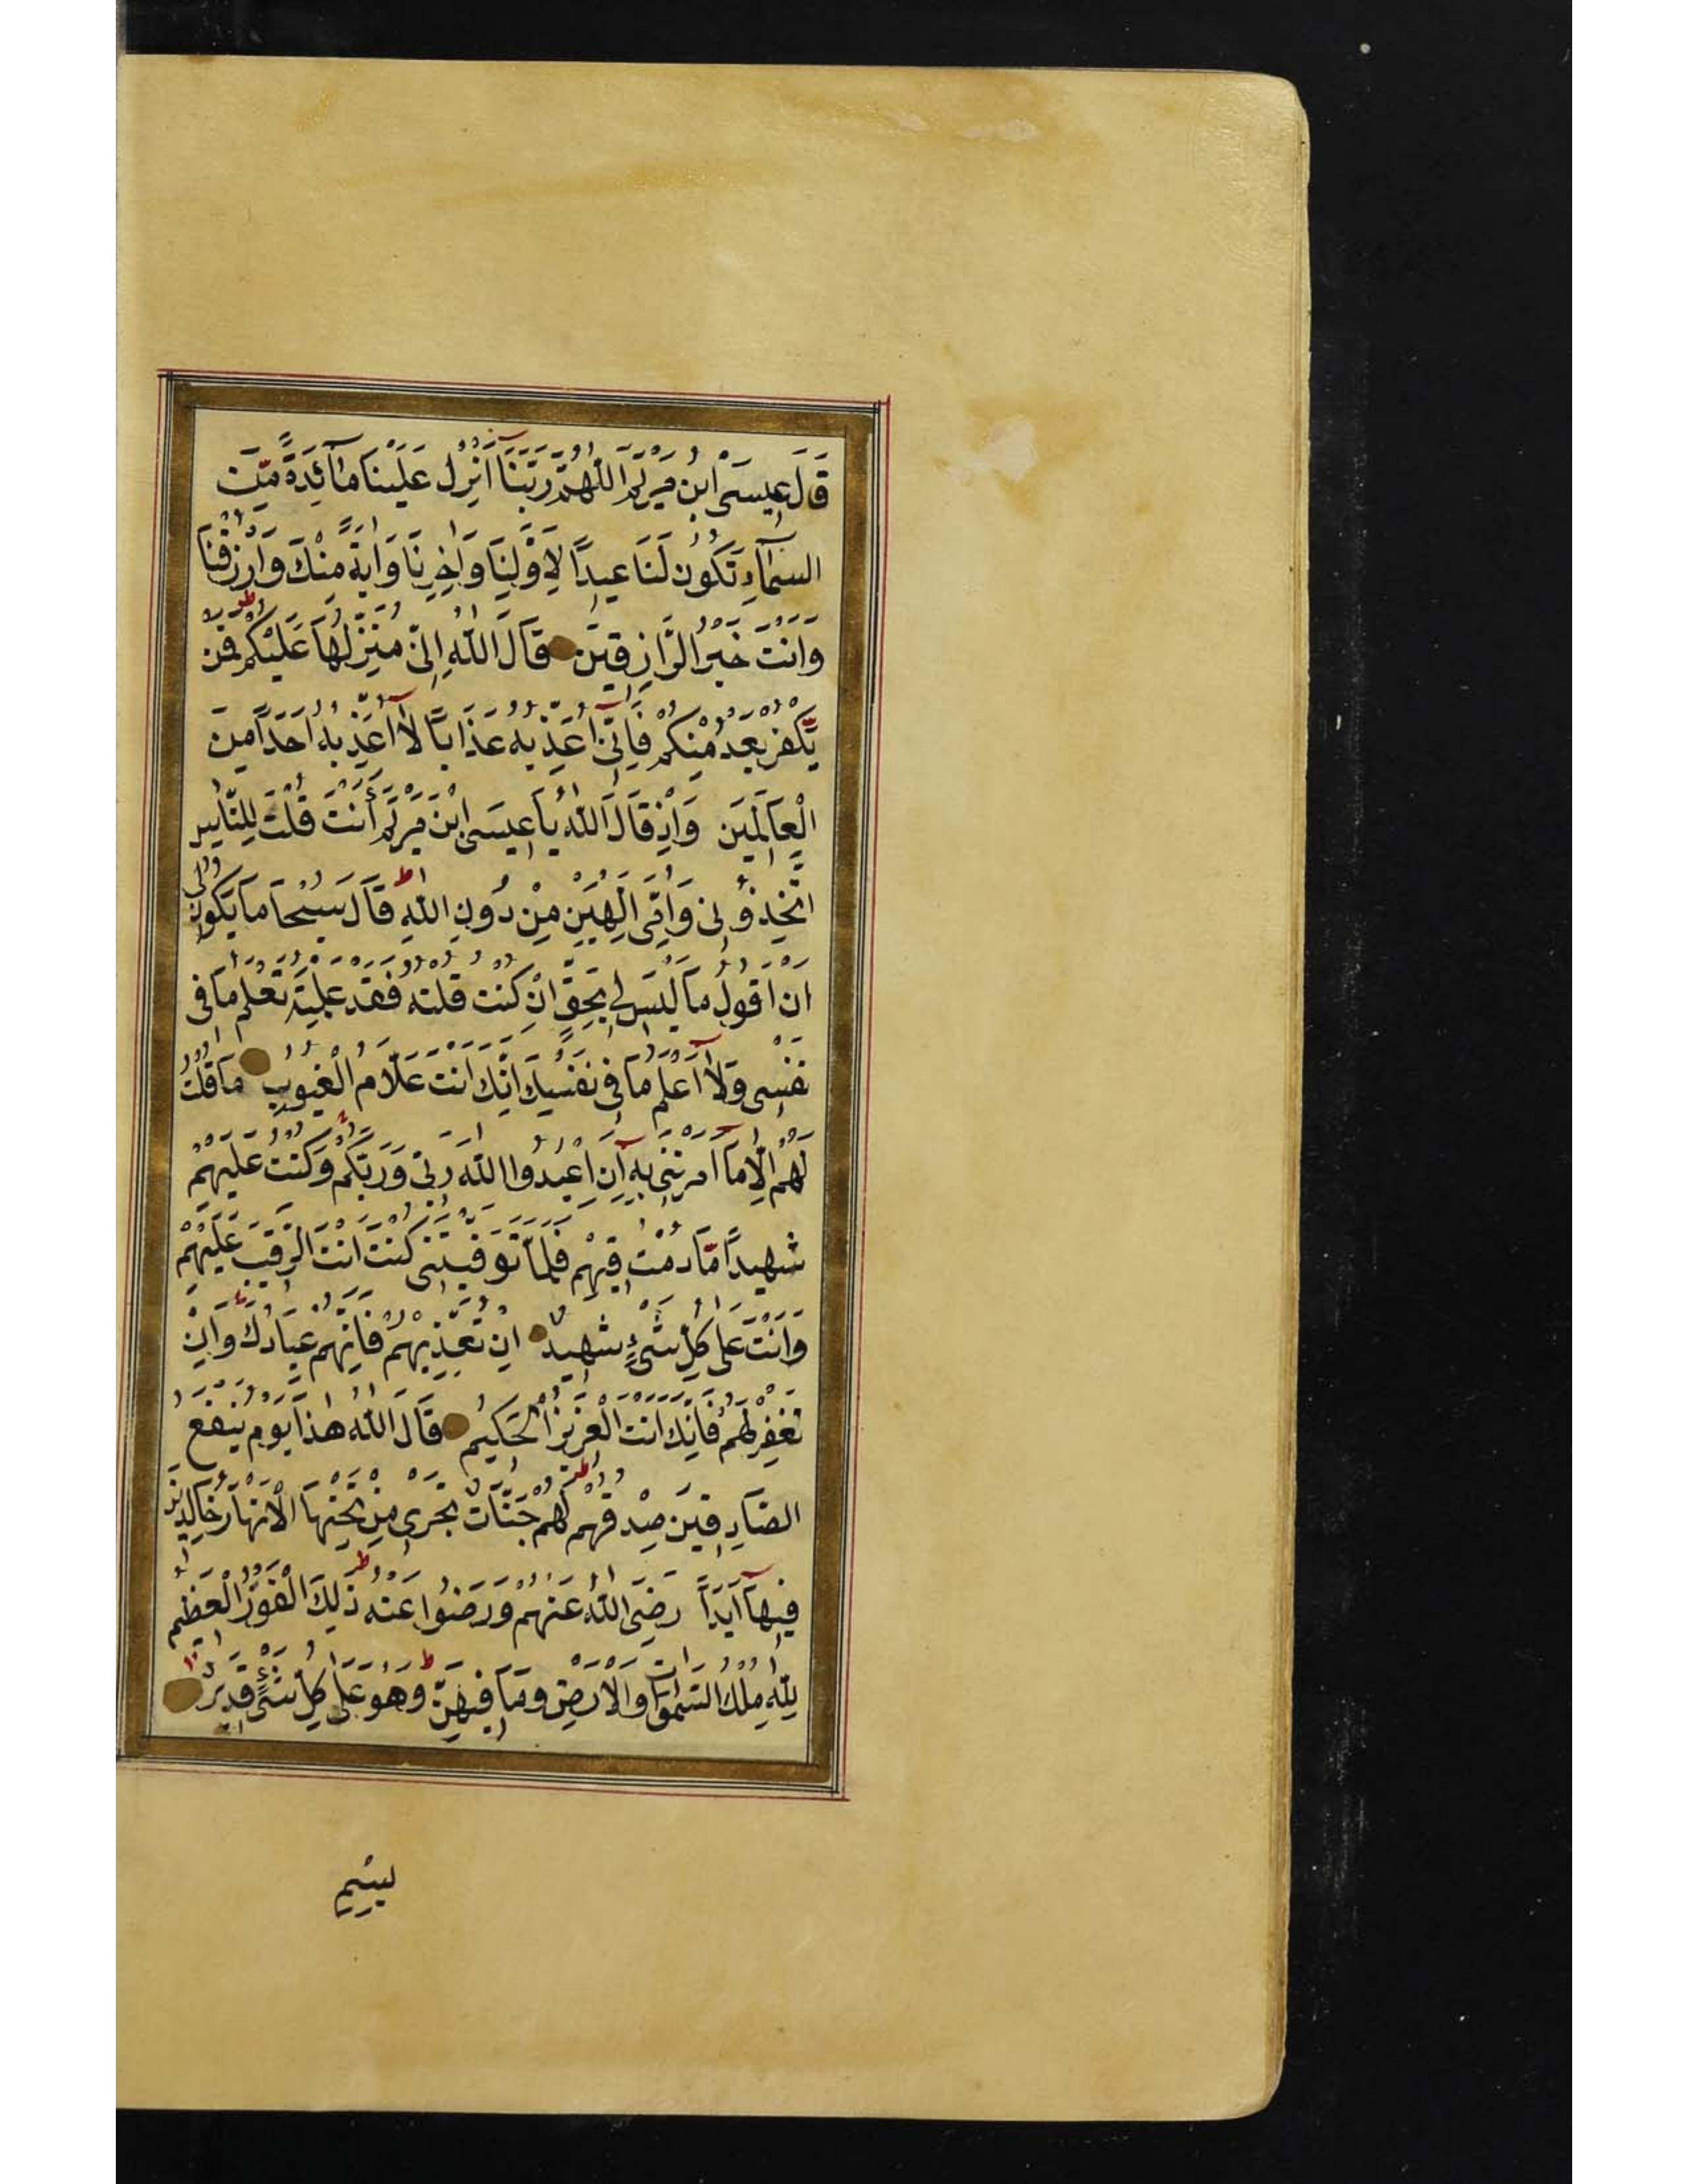 قَالَ عِيسَى ابْنُ مَرْيَمَ اللّٰهُمَّ رَبَّنَآ اَنْزِلْ عَلَيْنَا مَآئِدَةً مِّنَ
السَّمَآءِ تَكُونُ لَنَا عِيدًا لِاَوَّلِنَا وَاٰخِرِنَا وَاٰيَةً مِّنْكَ وَارْزُقْنَا
وَاَنْتَ خَيْرُ الرَّازِقِينَ قَالَ اللّٰهُ اِنِّي مُنَزِّلُهَا عَلَيْكُمْ فَمَنْ
يَّكْفُرْ بَعْدُ مِنْكُمْ فَاِنِّىٓ اُعَذِّبُهُ عَذَابًا لَآ اُعَذِّبُهُ اَحَدًا مِنَ
الْعَالَمِينَ وَاِذْ قَالَ اللّٰهُ يَا عِيسَى ابْنَ مَرْيَمَ ءَاَنْتَ قُلْتَ لِلنَّاسِ
اتَّخِذُونِى وَاُمِّىَ اِلٰهَيْنِ مِنْ دُونِ اللّٰهِ قَالَ سُبْحَا مَا يَكُونُ لِى
اَنْ اَقُولَ مَا لَيْسَ لِى بِحَقٍّ اِنْ كُنْتُ قُلْتُهُ فَقَدْ عَلِمْتَهُ تَعْلَمُ مَا فِى
نَفْسِى وَلَآ اَعْلَمُ مَا فِى نَفْسِكَ اِنَّكَ اَنْتَ عَلَّامُ الْغُيُوبِ مَا قُلْتُ
لَهُمْ اِلَّا مَآ اَمَرْتَنِى بِهٓ اَنِ اعْبُدُوا اللّٰهَ رَبِّى وَرَبَّكُمْ وَكُنْتُ عَلَيْهِمْ
شَهِيدًا مَّا دُمْتُ فِيهِمْ فَلَمَّا تَوَفَّيْتَنِى كُنْتَ اَنْتَ الرَّقِيبَ عَلَيْهِمْ
وَاَنْتَ عَلٰى كُلِّ شَىْءٍ شَهِيدٌ اِنْ تُعَذِّبْهُمْ فَاِنَّهُمْ عِبَادُكَ وَاِنْ
تَغْفِرْ لَهُمْ فَاِنَّكَ اَنْتَ الْعَزِيزُ الْحَكِيمُ قَالَ اللّٰهُ هٰذَا يَوْمُ يَنْفَعُ
الصَّادِقِينَ صِدْقُهُمْ لَهُمْ جَنَّاتٌ تَجْرِى مِنْ تَحْتِهَا الْاَنْهَارُ خَالِدِينَ
فِيهَآ اَبَدًا رَضِىَ اللّٰهُ عَنْهُمْ وَرَضُوا عَنْهُ ذٰلِكَ الْفَوْزُ الْعَظِيمُ
لِلّٰهِ مُلْكُ السَّمٰوَاتِ وَالْاَرْضِ وَمَا فِيهِنَّ وَهُوَ عَلٰى كُلِّ شَىْءٍ قَدِيرٌ
بِسْمِ